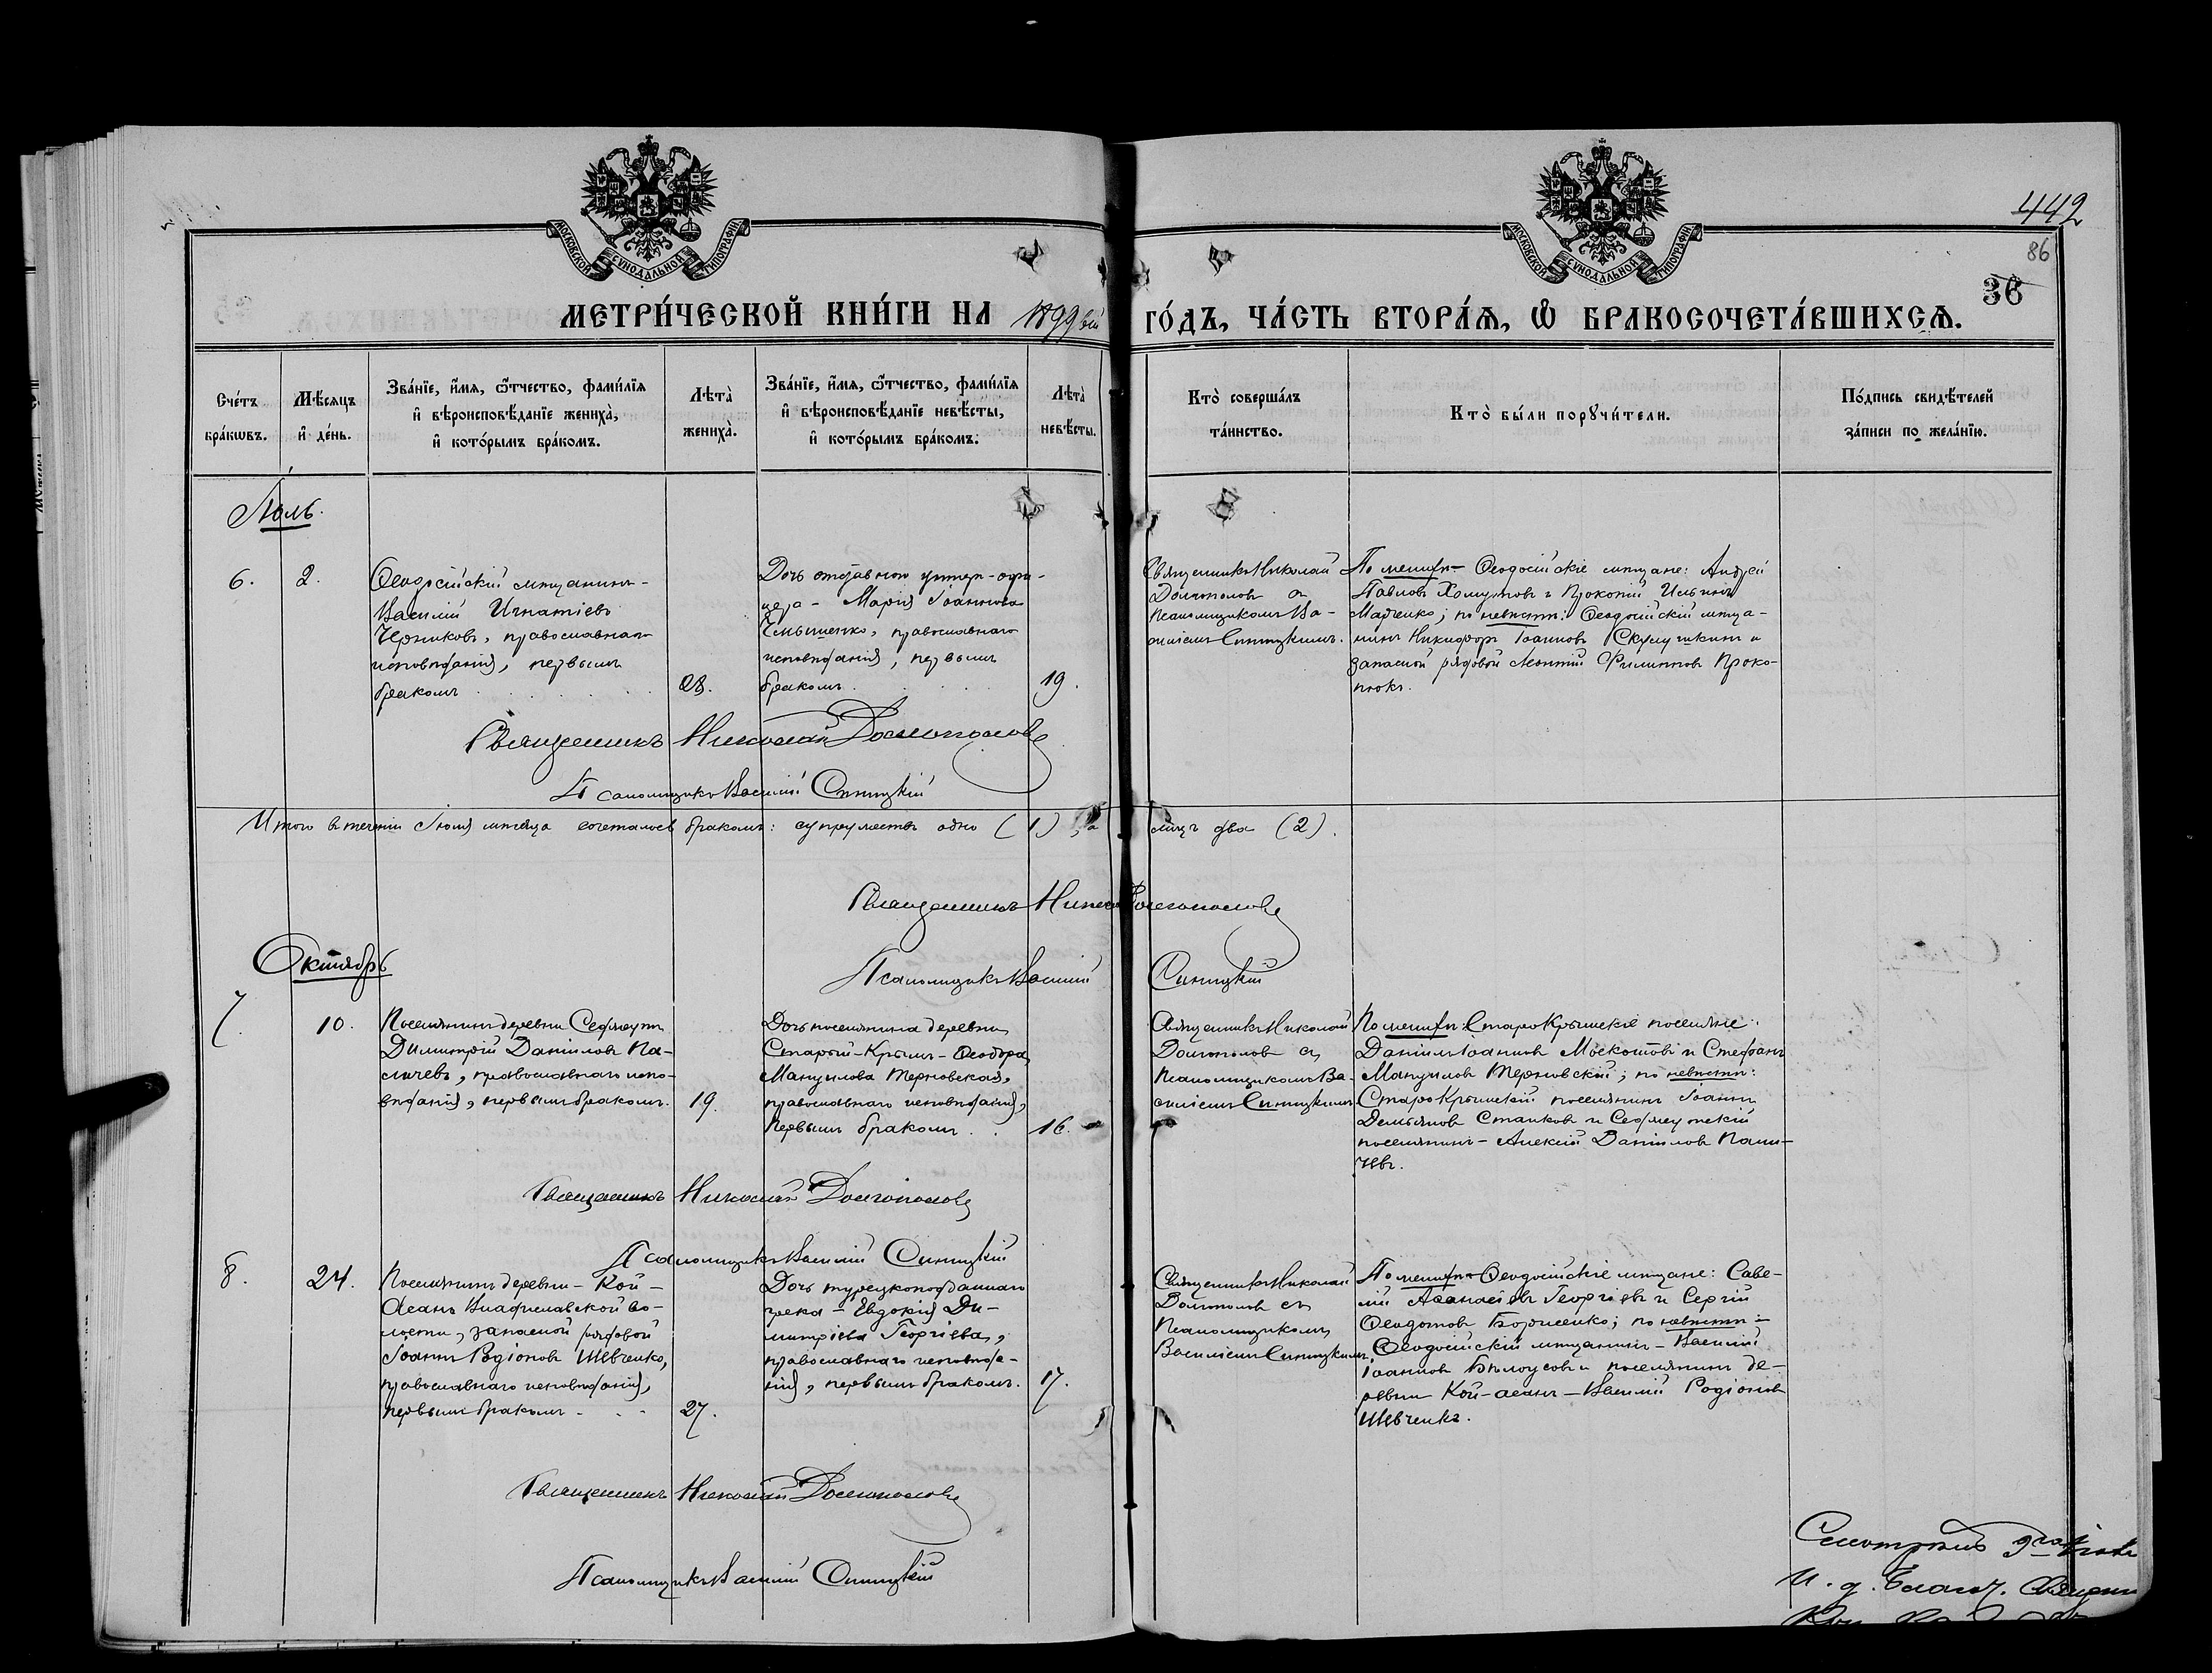 442
86
36
МОСКОВСКОЙ СѴНОДАЛЬНОЙ ТИПОГРАФІИ
МОСКОВСКОЙ СѴНОДАЛЬНОЙ ТИПОГРАФІИ
МЕТРИ́ЧЕСКОЙ КНИ́ГИ НА 1899вый ГО́ДЪ, ЧА́СТЬ ВТОРА́Ѧ, Ѽ БРАКОСОЧЕТА́ВШИХСѦ.
Сче́тъ
бра́кѡвъ.
Мѣ́сяцъ
и҆ де́нь.
Зва́нїе, и҆́мѧ, ѻ҆́тчество, фами́лїѧ
и҆ вѣроисповѣ́данїе жениха̀,
и҆ кото́рымъ бра́комъ.
Лѣта̀
жениха̀.
Зва́нїе, и҆́мѧ, ѻ҆́тчество, фами́лїѧ
и҆ вѣроисповѣ́данїе невѣ́сты,
и҆ кото́рымъ бра́комъ.
Лѣта̀
невѣ́сты.
Кто̀ соверша́лъ
та́инство.
Кто̀ бы́ли порꙋчи́тели.
По́дпись свидѣ́телей
за́писи по жела́нїю.
Іюль.
6.
2.
Ѳеодосійскій мѣщанинъ -
Василій Игнатіевъ
Черниковъ, православнаго
исповѣданія, первымъ
бракомъ
28.
Дочь отставного унтеръ-офи-
цера - Марія Іоаннова
православнаго
исповѣданія, первымъ
бракомъ
19.
Священникъ Николай
Долгополовъ съ
Псаломщикомъ Ва-
силіемъ Синицкимъ.
По женихѣ - Ѳеодосійскіе мѣщане: Андрей
Павловъ Хомутовъ и Прокопій Ильинъ
Марченко; по невѣстѣ: Ѳеодосійскій мѣща-
нинъ Никифоръ Іоанновъ и
запасной рядовой Леонтій Филипповъ Проко-
пюкъ.
Священникъ Николай Долгополовъ
Псаломщикъ Василій Синицкій
Итого въ теченіи Іюля мѣсяца сочеталось бракомъ: супружествъ одно (1), а лицъ два (2).
Священникъ Николай Долгополовъ
Псаломщикъ Василій Синицкій
Октябрь
7.
10.
Поселянинъ деревни
Димитрій Даніиловъ Па-
личевъ, православнаго испо-
вѣданія, первымъ бракомъ.
19.
Дочь поселянина деревни
Старый-Крымъ - Ѳеодора
Мануилова Терновская,
православнаго исповѣданія,
первымъ бракомъ
16.
Священникъ Николай
Долгополовъ съ
Псаломщикомъ Ва-
силіемъ Синицкимъ
По женихѣ: СтароКрымскіе поселяне:
Даніилъ Іоанновъ и Стефанъ
Мануиловъ Терновскій; по невѣстѣ:
СтароКрымскій поселянинъ Іоаннъ
Демьяновъ Станковъ и
поселянинъ - Алексій Даніиловъ Пали-
чевъ.
Священникъ Николай Долгополовъ
Псаломщикъ Василій Синицкій
8.
24.
Поселянинъ деревни - Кой -
Асанъ Владиславской во-
лости, запасной рядовой
Іоаннъ Родіоновъ Шевченко,
православнаго исповѣданія,
первымъ бракомъ
27.
Дочь турецкоподданнаго
грека - Евдокія Ди-
митріева Георгіева,
православнаго исповѣда-
нія, первымъ бракомъ.
17.
Священникъ Николай
Долгополовъ съ
Псаломщикомъ
Василіемъ Синицкимъ.
По женихѣ - Ѳеодосійскіе мѣщане: Саве-
лій Аѳанасіевъ Георгіевъ и Сергій
Ѳеодотовъ Борисенко; по невѣстѣ -
Ѳеодосійскій мѣщанинъ - Василій
Іоанновъ Бѣлоусовъ и поселянинъ де-
ревни Кой-асанъ - Василій Родіоновъ
Шевченко.
Священникъ Николай Долгополовъ
Псаломщикъ Василій Синицкій
Смотрѣлъ
И. д. Благоч. Священ